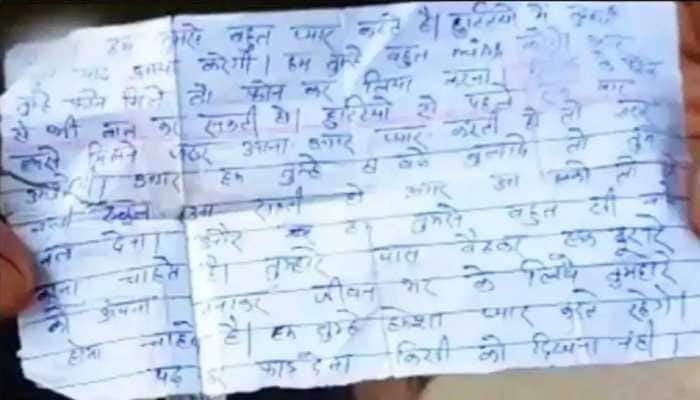 हम तुमसे बहुत प्यार करते है। छुट्टियो में तुम्हारी
याद आया करेगी। हम तुम्हे बहुत करेगे।
तुम्हे फोन मिले तो फोन कर लिया करना।
से भी बात कर सकती हो। छुट्टियो से पहले
हमसे मिलने जरूर आना अगर प्यार करती हो तो जरूर
अगर हम तुम्हे 8 बजे बुलाये तो तुम
स्कूल आ सकती हो अगर आ सको तो
बता देना। और हम तुमसे बहुत सी बाते
करना चाहते है। तुम्हारे पास बैठकर एक दूसरे
को अपना बनाकर जीवन भर के लिये तुम्हारे
होना चाहते है। हम तुम्हे हमेशा प्यार करते रहेगे।
पढ़ कर फाड़ देना किसी को दिखाना नही।